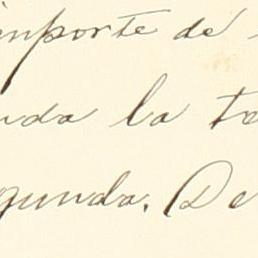 importe de
nda la te
gunda. De